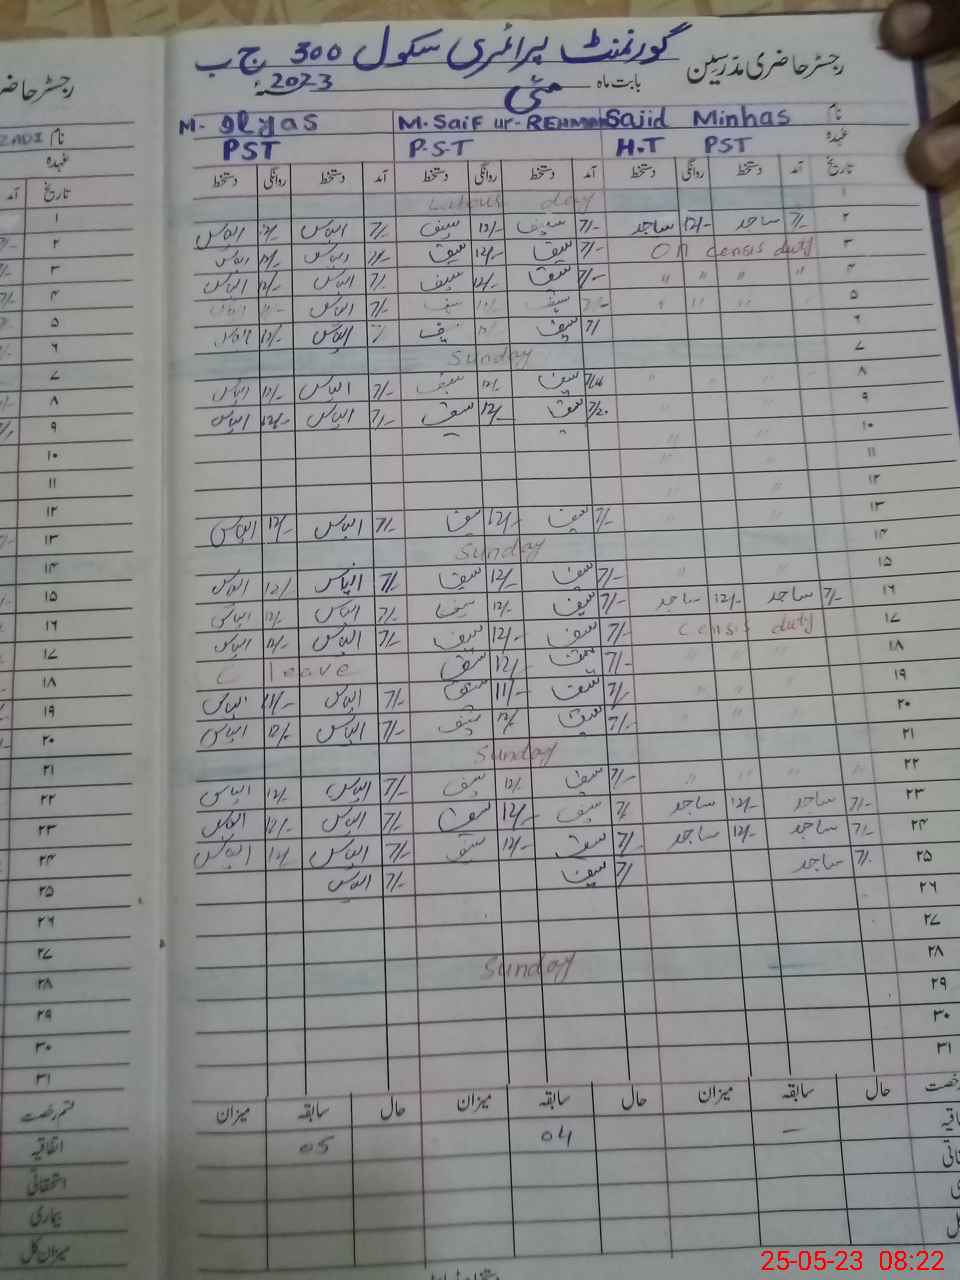 گورنمنٹ پرائمری سکول 300 ج ب
رجسٹر حاضری مدرسین
بابت ماہ مئی 2023ء
نام Sajid Minhas M. Saif ur-REHMAN M. Ilyas
عہدہ H.T PST P.S.T PST
تاریخ آمد دستخط روانگی دستخط آمد دستخط روانگی دستخط آمد دستخط روانگی دستخط
۱ Labour day
۲ 7/- ساجد 12/- ساجد 7/- سیف 12/- سیف 7/- الیاس 12/- الیاس
۳ On censis duty 7/- سیف 12/- سیف 7/- الیاس 12/- الیاس
۴ " " " " 7/- سیف 12/- سیف 7/- الیاس 12/- الیاس
۵ " " " " 7/- سیف 12/- سیف 7/- الیاس 12/- الیاس
۶ 7/ سیف 12/ سیف 7/ الیاس 12/- الیاس
۷ Sunday
۸ " " سیف 12/- سیف 7/- الیاس 12/- الیاس
۹ " " 7/20 سیف 12/- سیف 7/- الیاس 12/- الیاس
۱۰ " "
۱۱ " "
۱۲ " "
۱۳ " " 7/- سیف 12/- سیف 7/- الیاس 12/- الیاس
۱۴ Sunday
۱۵ " " 7/- سیف 12/- سیف 7/- الیاس 12/- الیاس
۱۶ 7/- ساجد 12/- ساجد 7/- سیف 12/- سیف 7/- الیاس 12/- الیاس
۱۷ Censis duty 7/- سیف 12/- سیف 7/- الیاس 12/- الیاس
۱۸ " " 7/- سیف 12/- سیف C leave
۱۹ " " 7/- سیف 11/- سیف 7/- الیاس 11/- الیاس
۲۰ " " 7/- سیف 12/- سیف 7/- الیاس 12/- الیاس
۲۱ Sunday
۲۲ " " " " 7/- سیف 12/- سیف 7/- الیاس 12/- الیاس
۲۳ 7/- ساجد 12/- ساجد 7/- سیف 12/- سیف 7/- الیاس 12/- الیاس
۲۴ 7/- ساجد 12/- ساجد 7/- سیف 12/- سیف 7/- الیاس 12/- الیاس
۲۵ 7/- ساجد 7/- سیف 7/- الیاس
۲۶
۲۷
۲۸ Sunday
۲۹
۳۰
۳۱
حال سابقہ میزان حال سابقہ میزان حال سابقہ میزان
— 04 05
رجسٹر حاضر
نام ZADI
عہدہ
تاریخ آمد
۱
۲
۳
۴
۵
۶
۷
۸
۹
۱۰
۱۱
۱۲
۱۳
۱۴
۱۵
۱۶
۱۷
۱۸
۱۹
۲۰
۲۱
۲۲
۲۳
۲۴
۲۵
۲۶
۲۷
۲۸
۲۹
۳۰
۳۱
قسم رخصت
اتفاقیہ
استحقاقی
بیماری
میزان کل
25-05-23 08:22